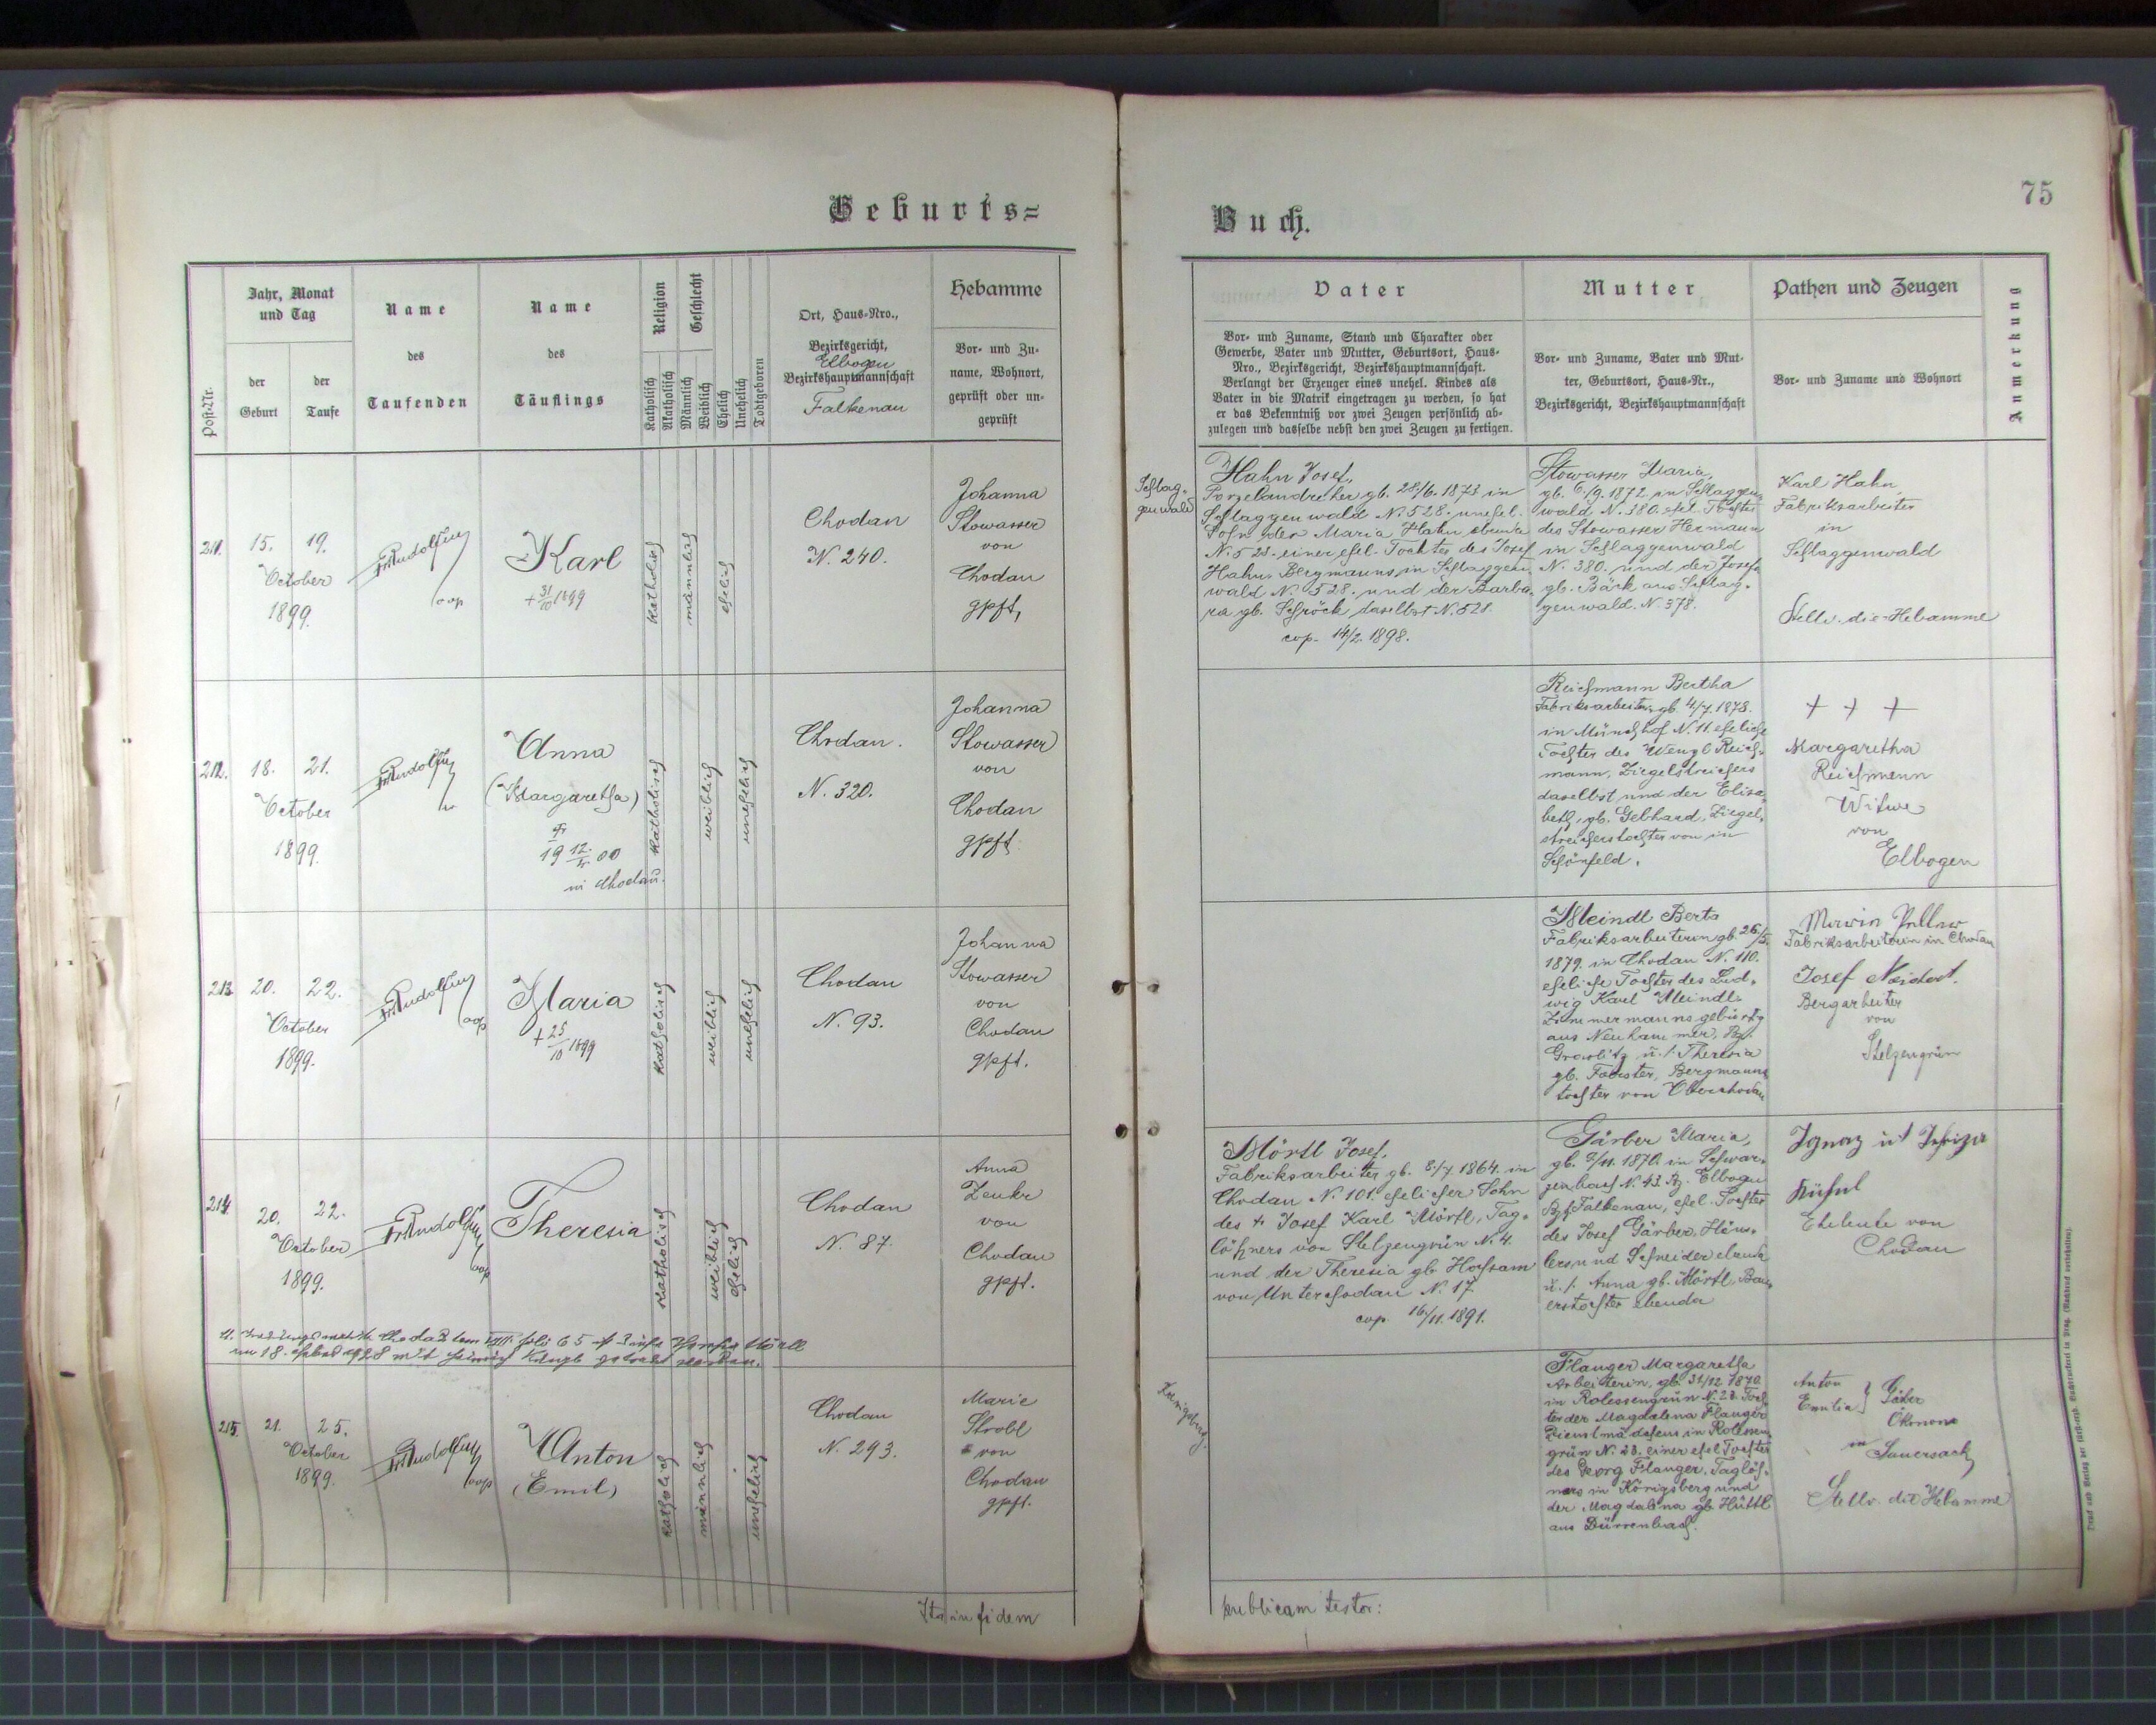 Geburts=
Jahr, Monat
und Tag
der
Geburt
der
Taufe
Post-Nr.
Name
des
Taufenden
Name
des
Täuflings
Religion
Katholisch
Akatholisch
Geschlecht
Männlich
Weiblich
Ehelich
Unehelich
Todtgeboren
Ort, Haus-Nro.,
Bezirksgericht,
Elbogen
Bezirkshauptmannschaft
Falkenau
Hebamme
Vor- und Zu-
name, Wohnort,
geprüft oder un-
geprüft
211. 15. 19.
October
1899.
Karl
+ 31/10 1899
katholisch
männlich
ehelich
Chodau
N. 240.
Johanna
Stowasser
von
Chodau
gpft,
212. 18. 21.
October
1899.
Anna
(Margaretha)
19 12. 00
in Chodau.
katholisch
weiblich
unehelich
Chodau.
N. 320.
Johanna
Stowasser
von
Chodau
gpft.
213 20. 22.
October
1899.
Maria
+ 25/10 1899
katholisch
weiblich
unehelich
Chodau
N. 93.
Johanna
Stowasser
von
Chodau
gpft.
214. 20. 22.
October
1899.
Theresia
katholisch
weiblich
ehelich
Chodau
N. 87.
Anna
Zenke
von
Chodau
gpft.
215. 21. 25.
October
1899.
Anton
(Emil)
katholisch
männlich
unehelich
Chodau
N. 293.
Marie
Strobl
von
Chodau
gpft.
Ita in fidem
75
Buch.
Vater
Vor- und Zuname, Stand und Charakter oder
Gewerbe, Vater und Mutter, Geburtsort, Haus-
Nro., Bezirksgericht, Bezirkshauptmannschaft.
Verlangt der Erzeuger eines unehel. Kindes als
Vater in die Matrik eingetragen zu werden, so hat
er das Bekenntniß vor zwei Zeugen persönlich ab-
zulegen und dasselbe nebst den zwei Zeugen zu fertigen.
Mutter
Vor- und Zuname, Vater und Mut-
ter, Geburtsort, Haus-Nr.,
Bezirksgericht, Bezirkshauptmannschaft
Pathen und Zeugen
Vor- und Zuname und Wohnort
Anmerkung
Schlag-
genwald
Hahn Josef,
Porzelandreher gb. 28/6. 1873 in
Schlaggenwald N. 528. unehel.
Sohn der Maria Hahn ebenda
N. 528. einer ehel. Tochter des Josef
Hahn, Bergmanns in Schlaggen-
wald N. 528. und der Barba-
ra gb. Schröck daselbst N. 521.
cop. 14/2. 1898.
Stowasser Maria,
gb. 6./9. 1872. in Schlaggen-
wald N. 380. ehel. Tochter
des Stowasser Hermann
in Schlaggenwald
N. 380. und der Josefa
gb. Bäck aus Schlag-
genwald. N. 378.
Karl Hahn
Fabriksarbeiter
in
Schlaggenwald
Stellv. die Hebamme
Reichmann Bertha
Fabriksarbeiterin gb. 4/7. 1878.
in Münchhof N. 11. eheliche
Tochter des Wenzl Reich-
mann, Ziegelstreichers
daselbst und der Elisa-
beth, gb. Gebhard, Ziegel-
streicherstochter von in
Schönfeld.
+ + +
Margaretha
Reichmann
Witwe
von
Elbogen
Meindl Berta
Fabriksarbeiterin gb. 26/5.
1879. in Chodau N. 110.
eheliche Tochter des Lud-
wig Karl Meindl,
Zimmermanns gebürtig
aus Neuhammer, Bz.
Graslitz u. d. Theresia
gb. Foerster, Bergmanns
tochter von Oberchodau
Fabriksarbeiterin in Chodau
Josef
Bergarbeiter
von
Stelzengrün
Mörtl Josef,
Fabriksarbeiter gb. 8./7. 1864. in
Chodau N. 101. ehelicher Sohn
des + Josef Karl Mörtl, Tag-
löhners von Stelzengrün N. 4.
und der Theresia gb.
von Unterchodau N. 17
cop. 16./11. 1891.
Gärber Maria,
gb. 2/11. 1870. in Schwar-
zenbach N. 43. Bz. Elbogen
Bzh Falkenau, ehel. Tochter
des Josef Gärber, Häus-
lers und Schneider ebenda
u. d. Anna gb. Mörtl, Bau-
erstochter ebenda
Ignaz
Eheleute von
Chodau
Königsberg.
Flauger Margaretha
Arbeiterin, gb. 31/12 1870.
in Rolessengrün N. 23. Toch-
ter der Magdalena Flauger
Dienstmädchens in Rolessen-
grün N. 23. einer ehel Tochter
des Georg Flauger, Taglöh-
ners in Königsberg und
der Magdalena gb Hüttl
aus Dürrenbach.
Anton
Emilia
Ökonom
in
Sauersack
Stellv. die Hebamme
publicam testor: